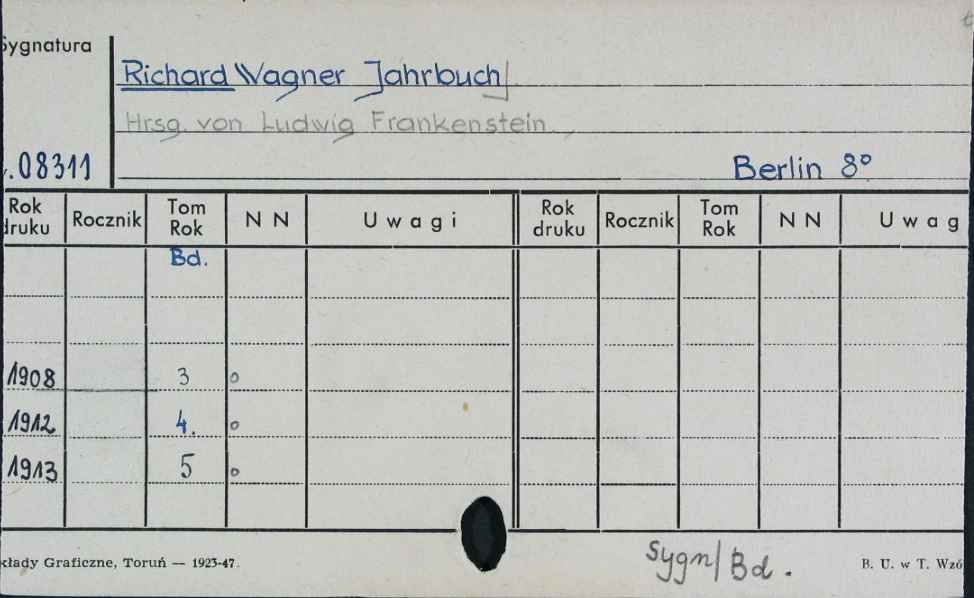 Sygnatura
Richard Wagner Jahrbuch
Hrsg. von Ludwig Frankenstein
.08311 Berlin 8°
Rok druku Rocznik Tom Rok N N Uwagi Rok druku Rocznik Tom Rok N N Uwag
Bd.
1908 3 o
1912 4. o
1913 5 o
kłady Graficzne, Toruń — 1923-47.
Sygn/Bd.
B. U. w T. Wzó